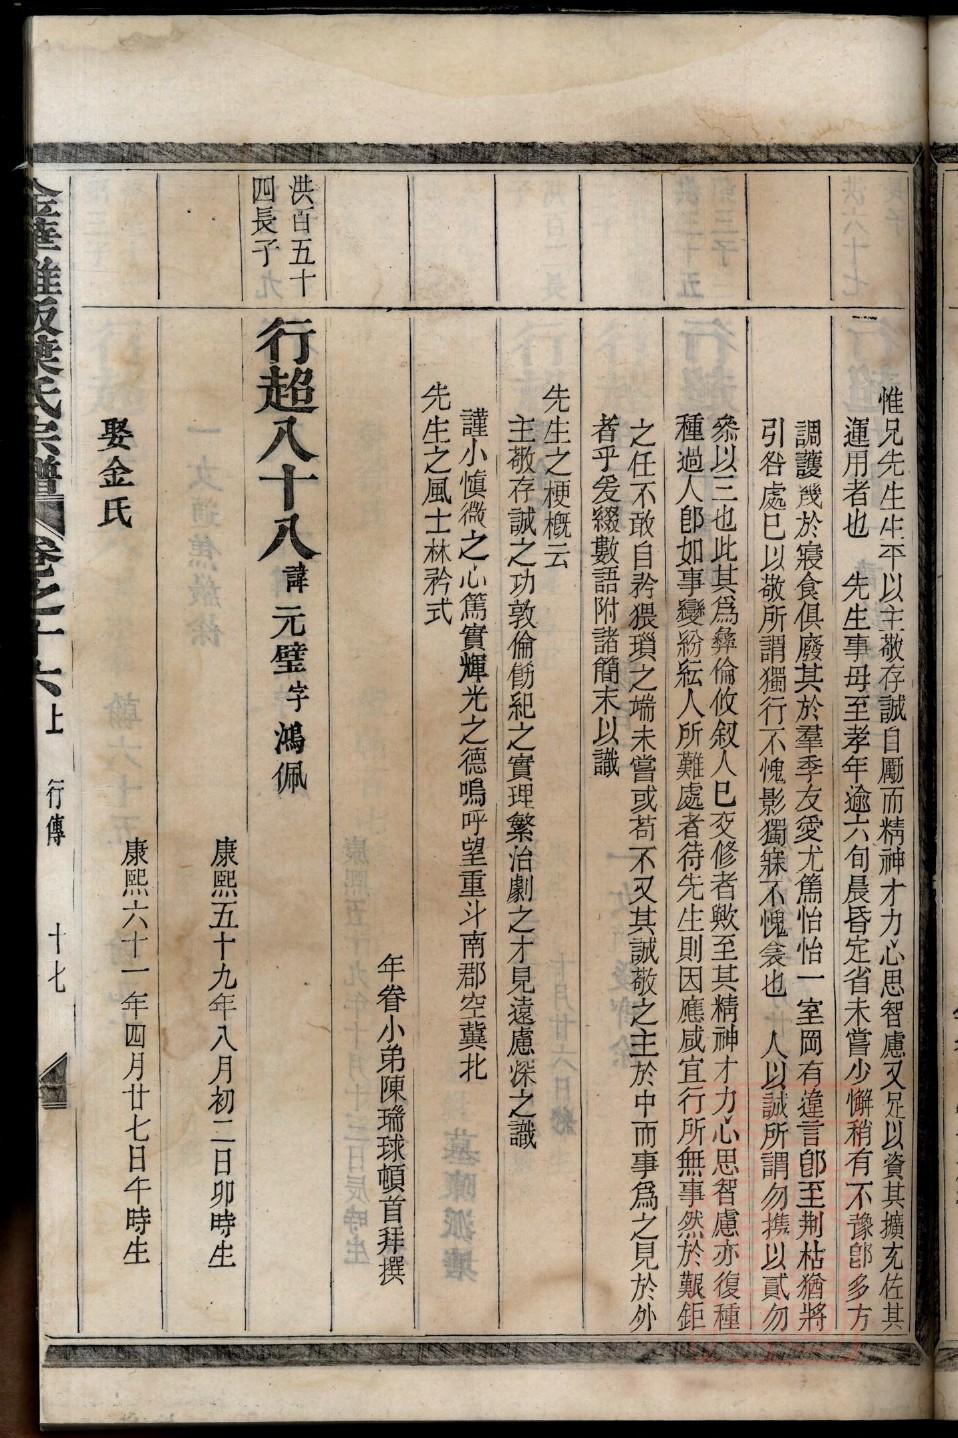 惟兄先生生平以主敬存誠自勵而精神才力心思智慮又足以資其擴充佐其
運用者也　先生事母至孝年逾六旬晨昏定省未嘗少懈稍有不豫卽多方
調護幾於寢食俱廢其於羣季友愛尤篤怡怡一室罔有違言卽至荆枯猶將
引咎處巳以敬所謂獨行不愧影獨寐不愧衾也　人以誠所謂勿擕以貳勿
叅以三也此其爲彝倫攸叙人巳交修者歟至其精神才力心思智慮亦復種
種過人卽如事變紛紜人所難處者待先生則因應咸宜行所無事然於艱鉅
之任不敢自矜猥瑣之端未嘗或苟不又其誠敬之主於中而事爲之見於外
者乎爰綴數語附諸簡末以識
先生之梗槪云
主敬存誠之功敦倫飭紀之實理繁治劇之才見遠慮深之識
謹小愼微之心篤實輝光之德嗚呼望重斗南郡空冀北
先生之風士林矜式
年眷小弟陳瑺球頓首拜撰
洪百五十
四長子
行超八十八諱元璧字鴻佩
康熙五十九年八月初二日卯時生
娶金氏
康熙六十一年四月廿七日午時生
葉氏宗譜　卷之十六上　行傳　十七